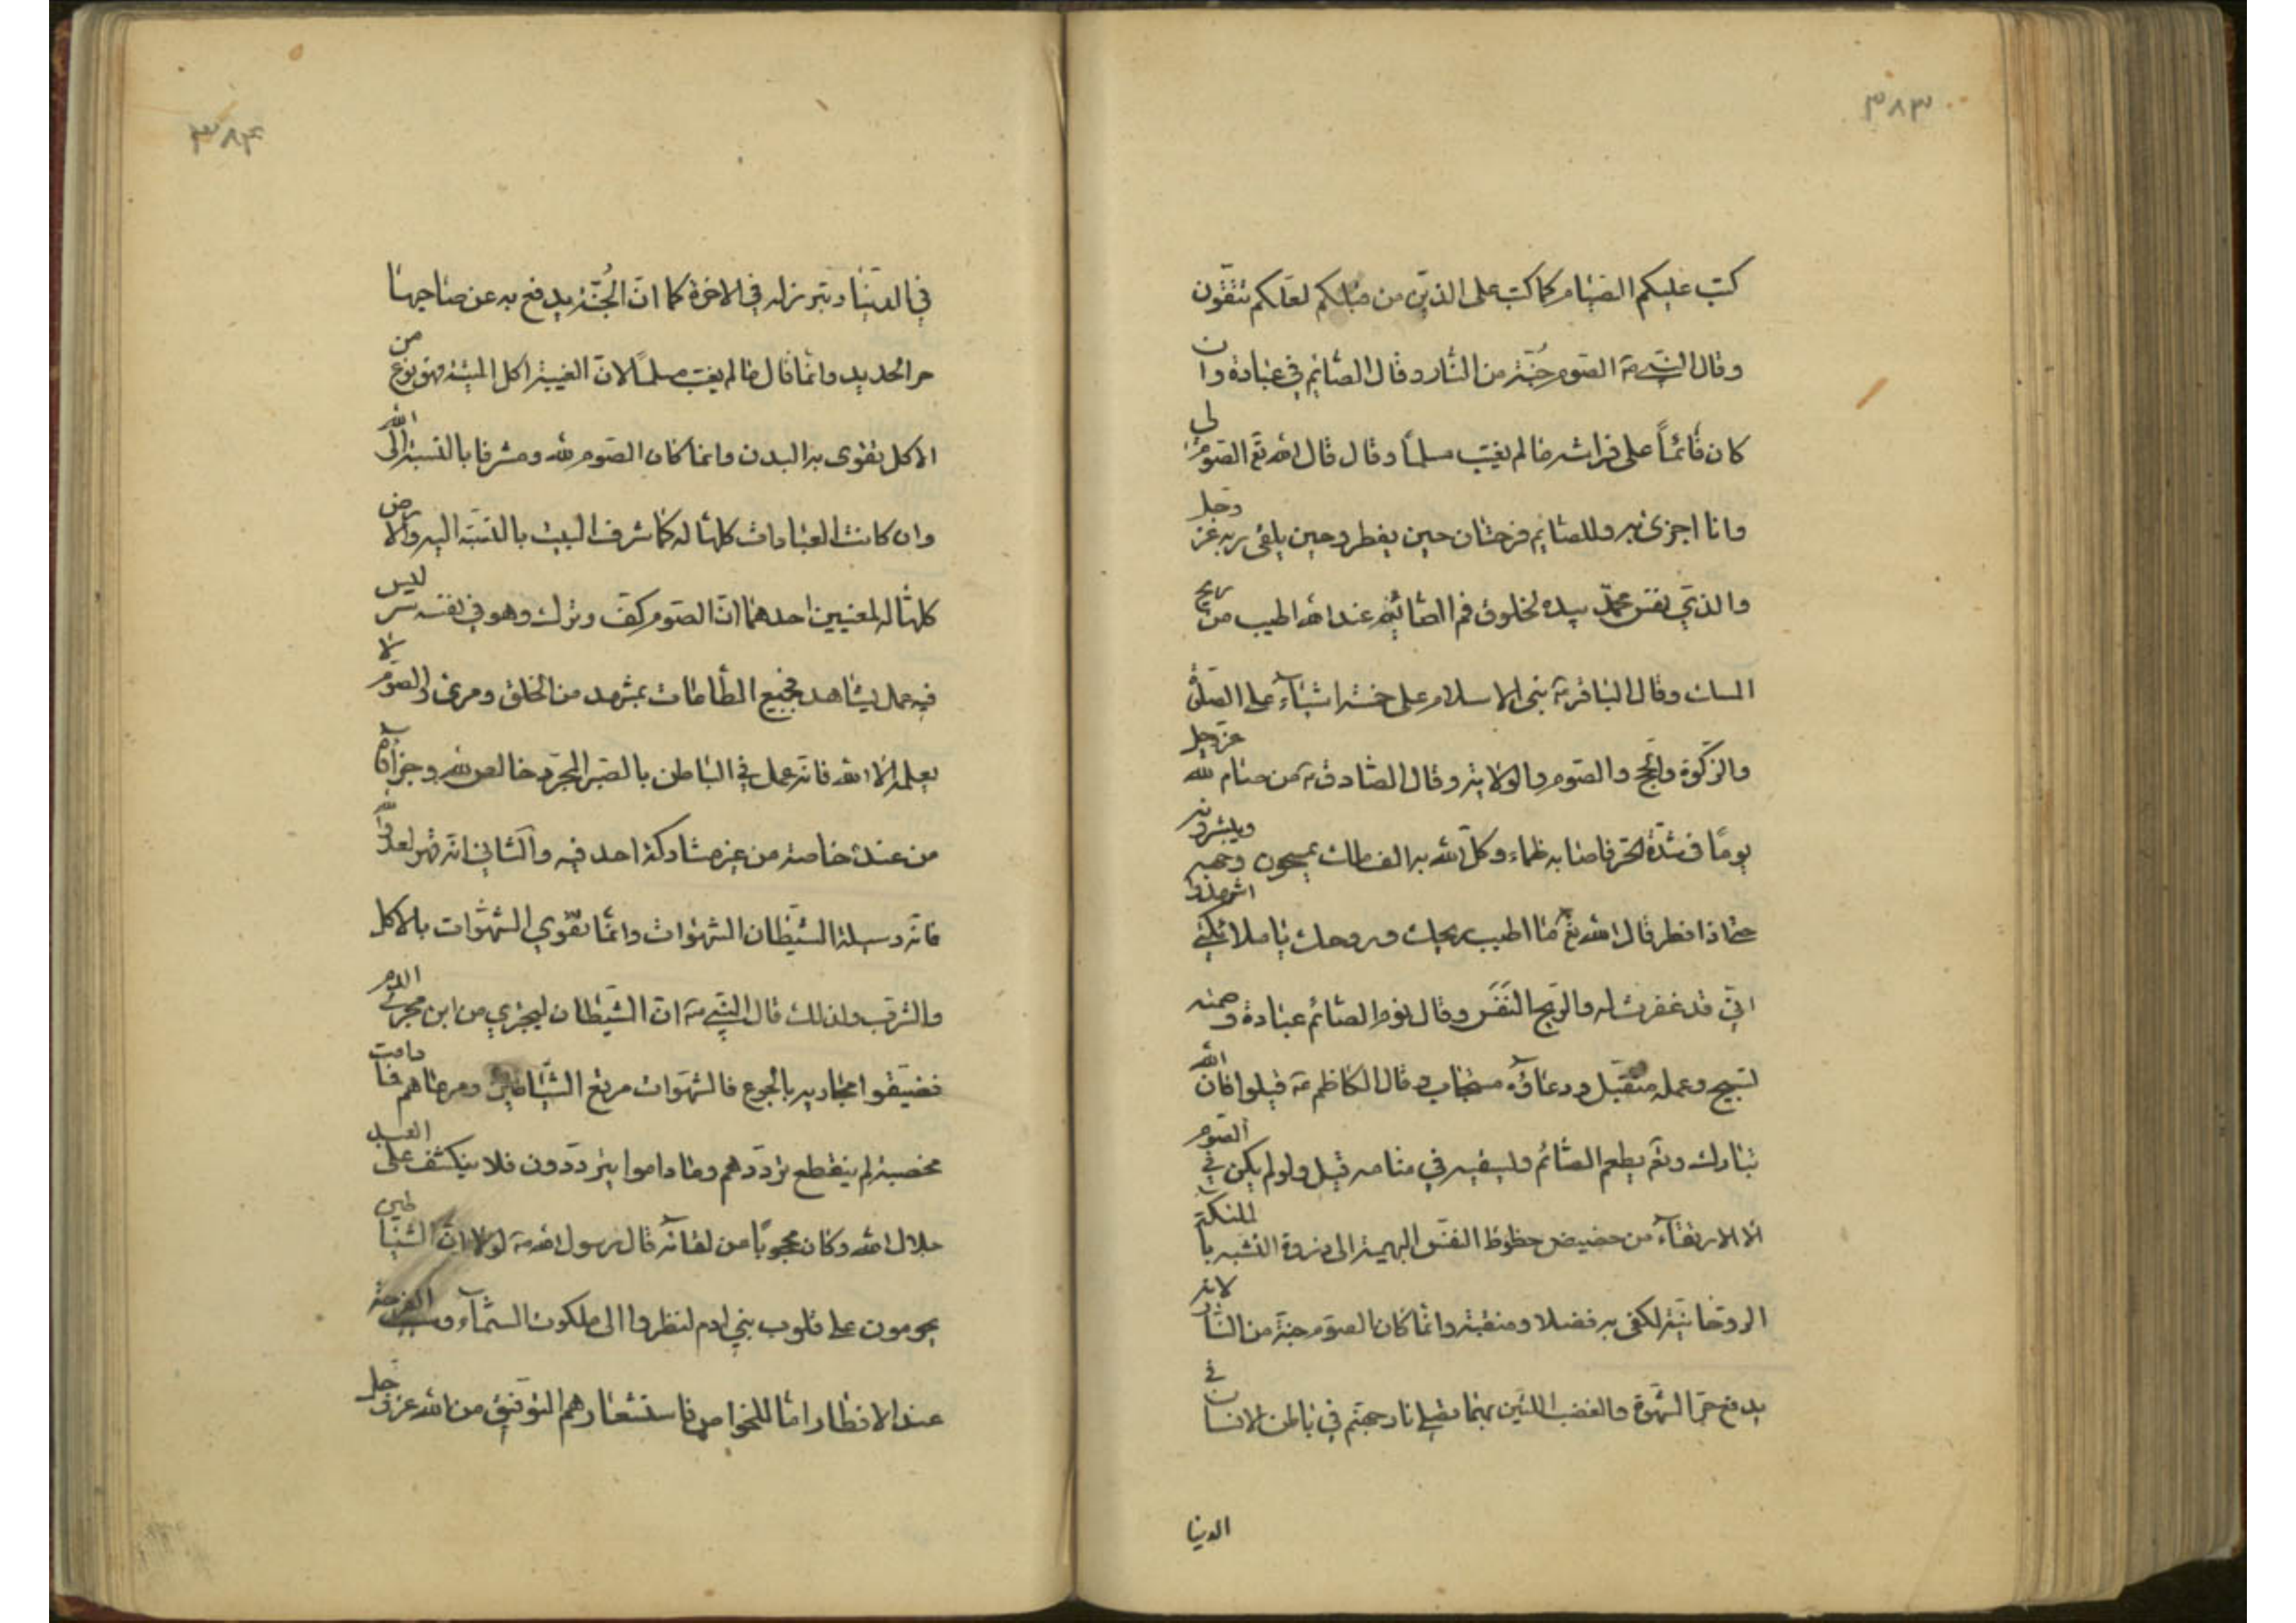 ٣٨٣
كتب عليكم الصيام كما كتب على الذين من قبلكم لعلكم تتقون
وقال النبي صَ الصوم جُنّة من النار وقال الصائم في عبادة وان
كان قائماً على فراشه ما لم يغتب مسلماً وقال قال الله تعَ الصوم لي
وانا اجزى به وللصايم فرحتان حين يفطر وحين يلقى ربه عز وجل
والذي نفس محمّد بيده لخلوق فم الصائم عند الله اطيب من ريح
المسك وقال الباقر عَ بنى الاسلام على خمسة اشياء على الصلوة
والزكوة والحج والصوم والولاية وقال الصادق عَ من صام لله عز وجل
يومًا في شدّة الحرّ فاصابه ظماء وكلّ الله به الف ملك يمسحون وجهه ويبشرونه
حتى اذا افطر قال الله تعَ ما اطيب ريحك وروحك يا ملائكتي اشهدوا
انّي قد غفرت له والريح النَفَس وقال نوم الصائم عبادة وصمته
تسبيح وعمله متقبّل ودعاؤه مستجاب وقال الكاظم عَ قيلوا فان الله
تبارك وتعَ يطعم الصائم ويسقيه في منامه قيل ولو لم يكن في الصوم
الا الارتقاء من حضيض حظوظ النفس البهيمية الى ذروة التشبه بالملئكة
الروحانيّة لكفى به فضلا ومنقبة وانّما كان الصوم جنة من النار لانه
يدفع حرّ الشهوة والغضب اللتين بهما يصلي نار جهنم في باطن الانسان في
الدنيا
٣٨٤
في الدنيا وتبرز له في الاخرة كما انّ الجُنّة يدفع به عن صاحبها
حر الحديد وانّما قال ما لم يغتب مسلماً لانّ الغيبة اكل الميتة فهو نوع من
الاكل تقوى به البدن وانما كان الصوم لله ومشرفا بالنسبة الى الله
وان كانت العبادات كلها له كما شرف البيت بالنسبة اليه والارض
كلها له لمعنيين احدهما انّ الصوم كفّ وترك وهو في نفسه سر ليس
فيه عمل يشاهد فجميع الطاعات بمشهد من الخلق ومرئ والصوم لا
يعلمه الا الله فانه عمل في الباطن بالصبر المجرّد خالص لله وجزاؤه
من عنده خاصة من غير مشاركة احد فيه والثاني انه قهر لعدو الله
فانه وسيلة الشيطان الشهوات وانّما تقوي الشهوات بالاكل
والشرب ولذلك قال النبي صَ انّ الشيطان ليجري من ابن مجرى الدم
فضيّقوا مجاريه بالجوع فالشهوات مرتع الشياطين ومرعاهم فما دامت
مخصبة لم ينقطع تردّدهم وما داموا يتردّدون فلا ينكشف على العبد
جلال الله وكان محجوبًا من لقائه قال رسول الله صَ لولا انّ الشياطين
يحومون على قلوب بني ادم لنظروا الى ملكوت السماء
عند الافطار امّا للخواص فاستشعارهم التوفيق من الله عز وجل